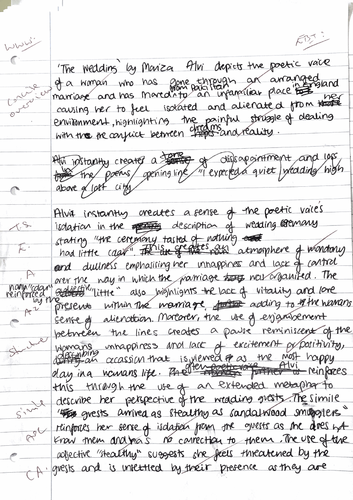 www:
EBI:
concise overview
'The Wedding' by Moniza Alvi depicts the poetic voice
of a woman who has gone through an arranged
marriage and has moved from Pakistan to an unfamiliar place in England
causing her to feel isolated and alienated from her
environment, highlighting the painful struggle of dealing
with the conflict between dreams and reality.
Alvi instantly creates a tone of disappointment and loss
the poems opening line "I expected a quiet wedding high
above a lost city
T.S.
Alvi instantly creates a sense of the poetic voice's
isolation in the description of wedding ceremony
E.
stating "the ceremony tasted of nothing
had little colour". This creates an atmosphere of monotony
A
and dullness emphasising her unhappiness and lack of control
over the way in which the marriage was organised. The
reinforced by the
"little" also highlights the lack of vitality and love
A2
present within the marriage, adding to the womans
sense of alienation. Moreover the use of enjambment
between the lines creates a pause reminiscent of the
structure
womans unhappiness and lack of excitement or positivity,
describing an occassion that is viewed as the most happy
day in a womans life. The Alvi reinforces
this through the use of an extended metaphor to
simile
describe her perspective of the wedding guests. The simile
"guests arrived as stealthy as sandalwood smugglers"
A2C
reinforces her sense of isolation from the guests as she does not
know them and has no connection to them. The use of the
adjective "stealthy" suggests she feels threatened by the
CA
guests and is unsettled by their presence as they are